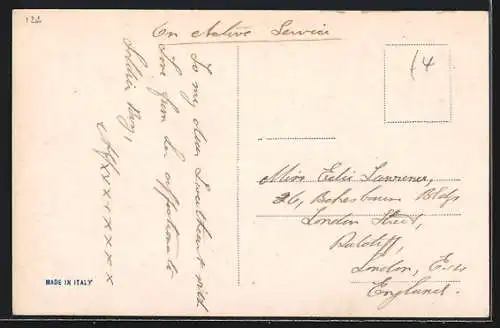 122
On Active Service
14
To my dear Sweetheart with
Love from her affectionate
Soldier Boy,
Alf x x x x x x x
Miss Edie Lawrence,
26, Buildgs
London Street,
Ratcliff,
London, E.14
England.
MADE IN ITALY